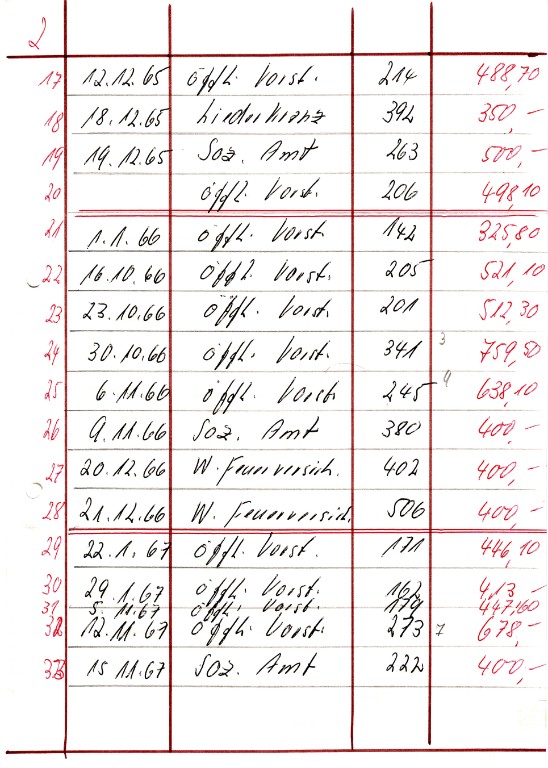 2
17 12.12.65 öffl. Vorst. 214 488,70
18 18.12.65 Liederkranz 392 350,-
19 19.12.65 Soz. Amt 263 500,-
20 öffl. Vorst. 206 498,10
21 1.1.66 öffl. Vorst. 142 325,80
22 16.10.66 öffl. Vorst. 205 521,10
23 23.10.66 öffl. Vorst. 201 512,30
24 30.10.66 öffl. Vorst. 341 3 759,50
25 6.11.66 öffl. Vorst. 245 9 638,10
26 9.11.66 Soz. Amt 380 400,-
27 20.12.66 W. Feuerversich. 402 400,-
28 21.12.66 W. Feuerversich. 506 400,-
29 22.1.67 öffl. Vorst. 171 446,10
30 29.1.67 öffl. Vorst. 162 413-
31 5.11.67 öffl. Vorst. 179 447,60
32 12.11.67 öffl. Vorst. 273 7 678,-
33 15 11.67 Soz. Amt 222 400,-